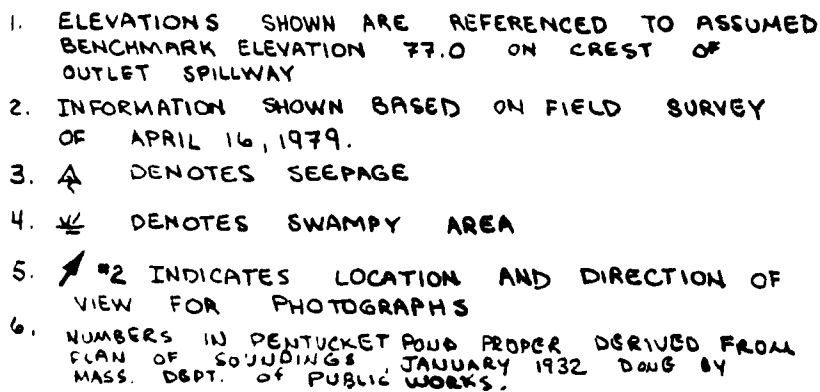 1. ELEVATIONS SHOWN ARE REFERENCED TO ASSUMED
BENCHMARK ELEVATION 77.0 ON CREST OF
OUTLET SPILLWAY
2. INFORMATION SHOWN BASED ON FIELD SURVEY
OF APRIL 16, 1979.
3. DENOTES SEEPAGE
4. DENOTES SWAMPY AREA
5. #2 INDICATES LOCATION AND DIRECTION OF
VIEW FOR PHOTOGRAPHS
6. NUMBERS IN PENTUCKET POND PROPER DERIVED FROM
PLAN OF SOUNDINGS, JANUARY 1932 DONE BY
MASS. DEPT. OF PUBLIC WORKS.